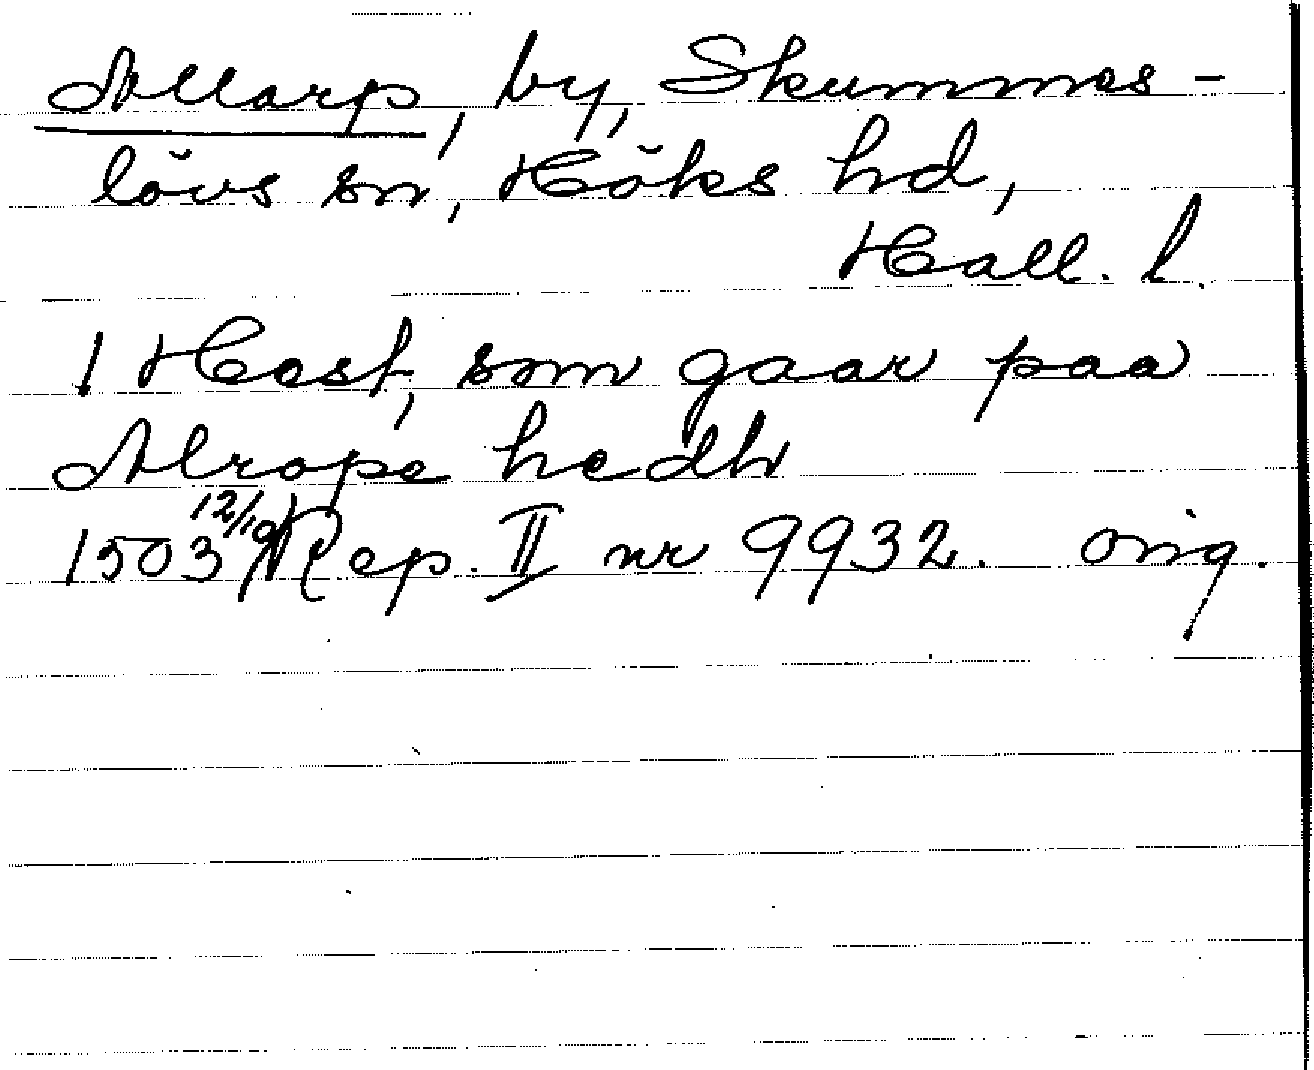 Allarp, by, Skummes-
lövs sn, Höks hd,
Hall. l.
1 Hest, som gaar paa
Alrope hedh
1503 12/10 Rep. II nr 9932. orig.